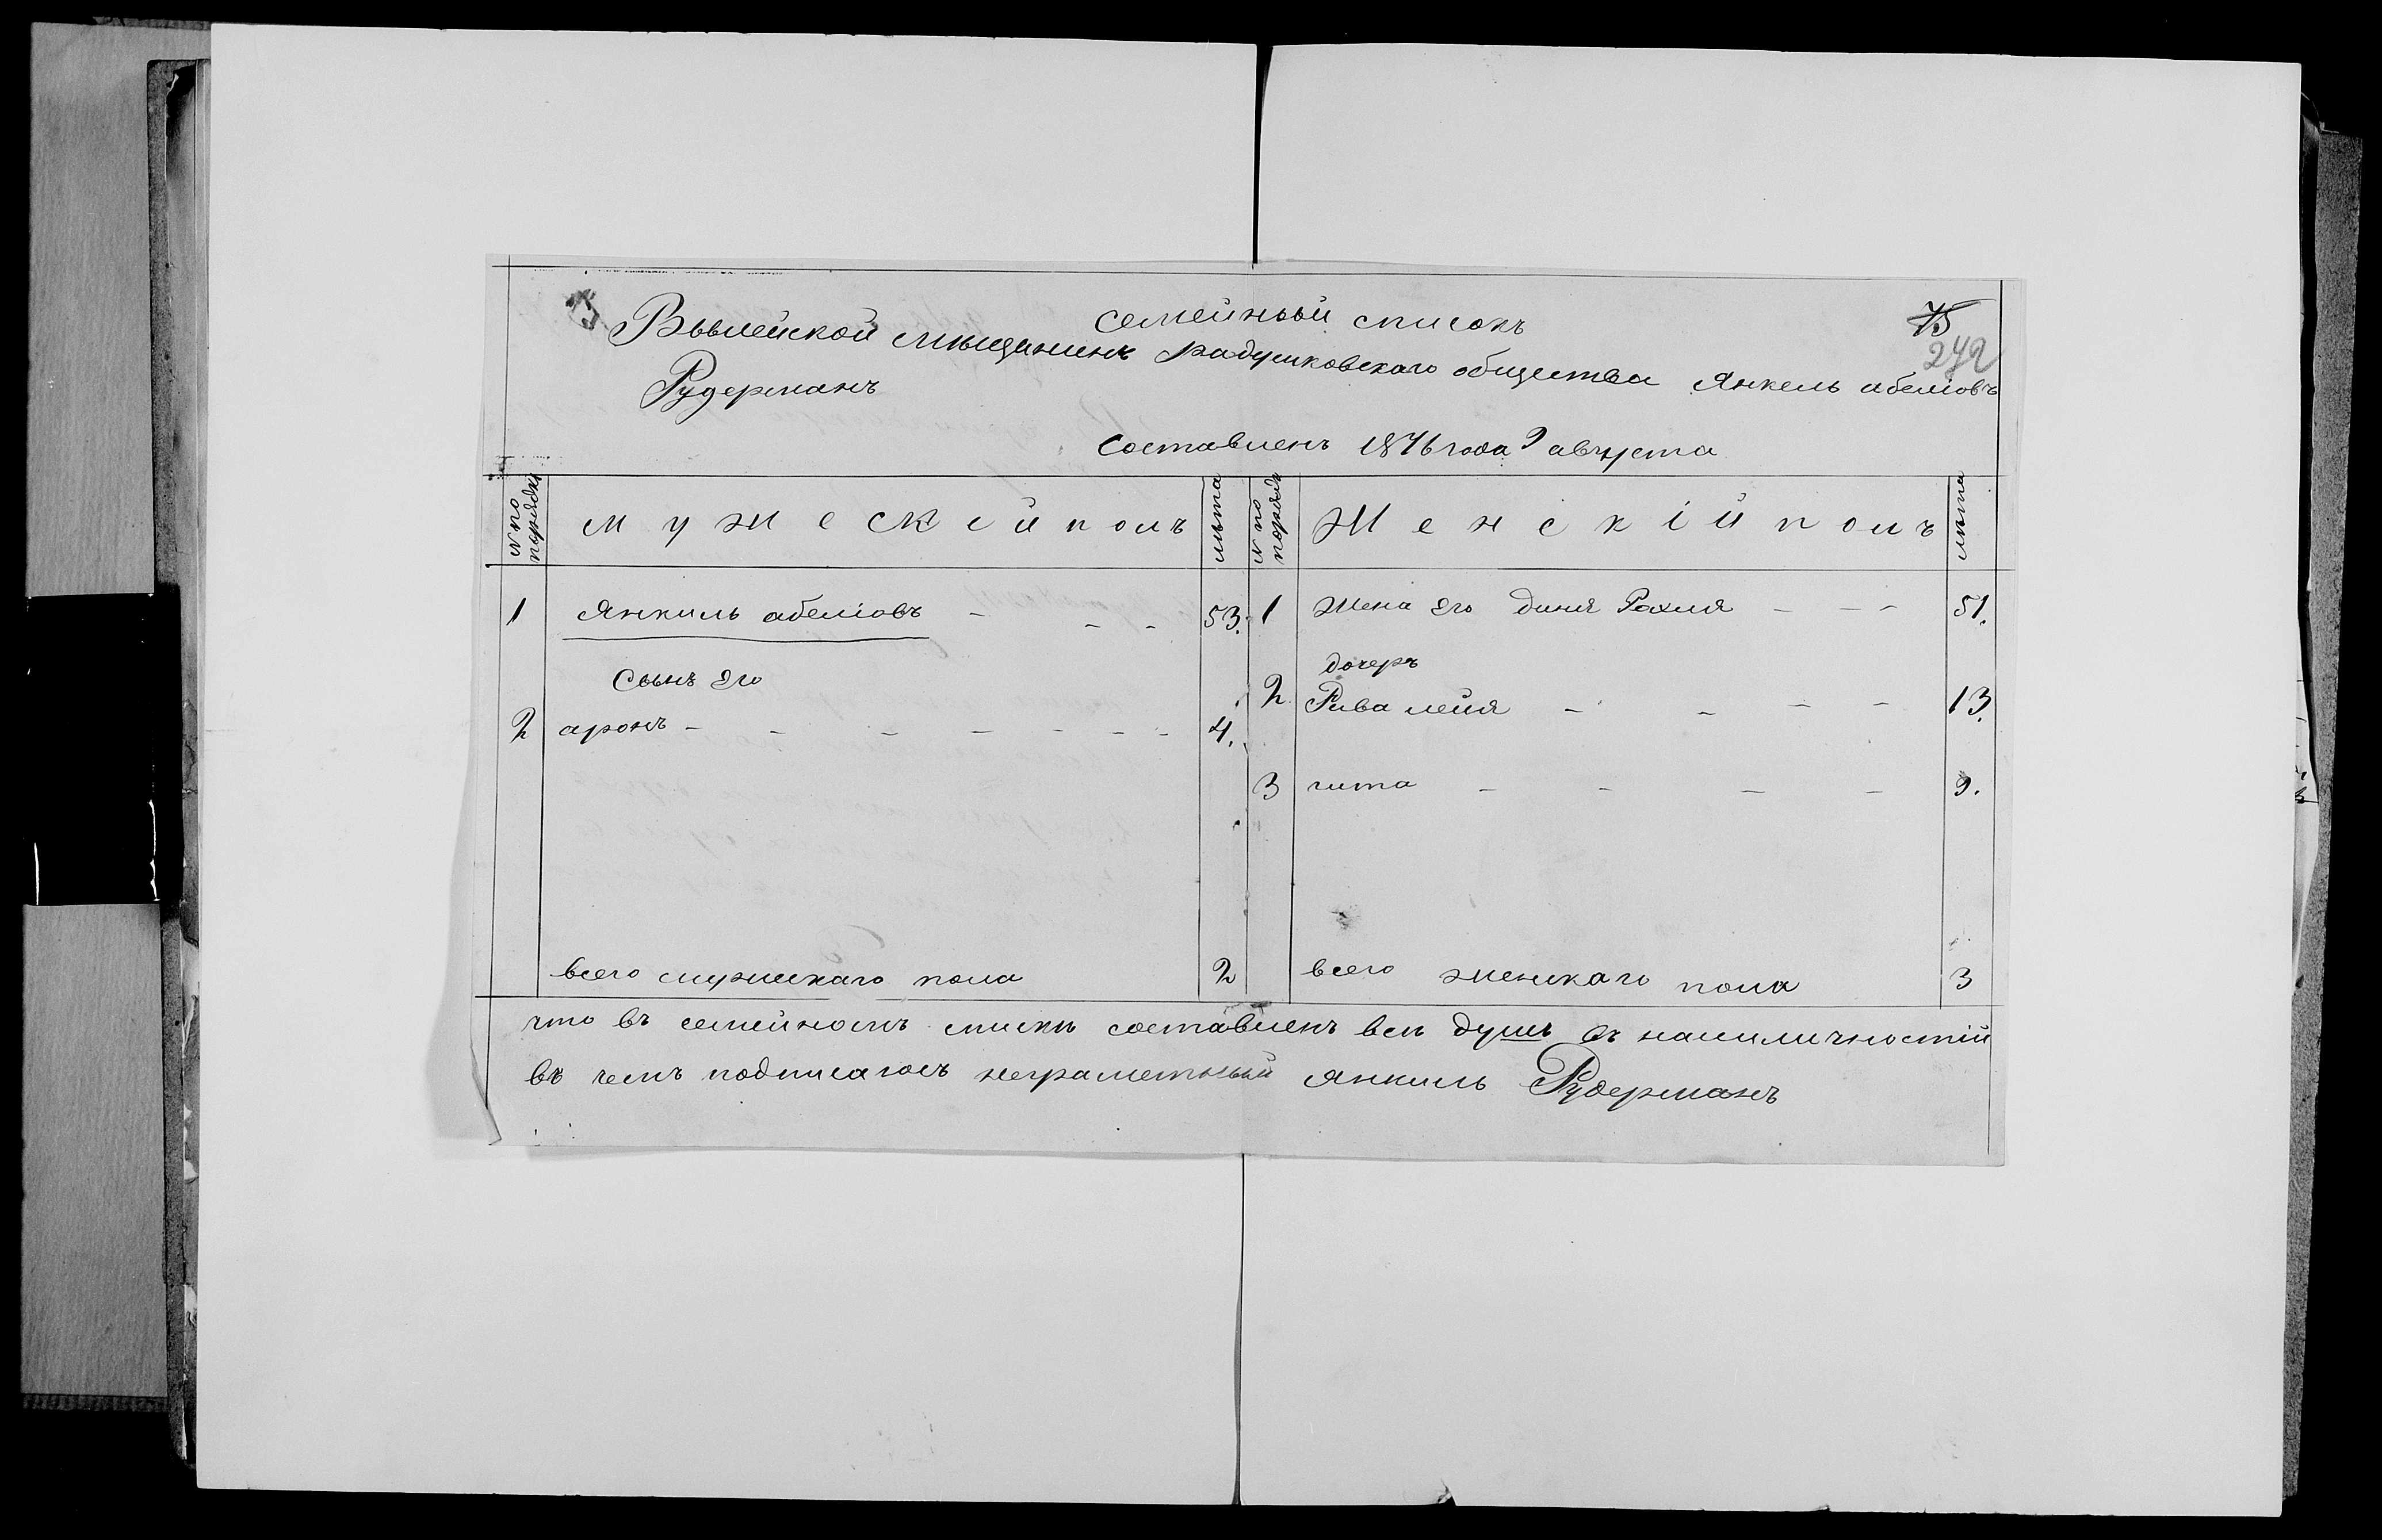 семейный списокъ
75
272
Вылейской мыщининъ Радушковскаго общества Янкель абеліовъ
Рудерманъ
Составленъ 1876 года 9 августа
№ по порядку
Мужескей полъ
лѣта
№ по порядк
Женскій полъ
лѣта
1 Янкиль абеліовъ - - - 53. 1 Жена Его Диня Рохля - - - 51.
Сынъ Его дочеръ
2 аронъ - - - - - - - 4. 2 Рива лейя - - - - 13.
3 гита - - - - 9.
всего мужескаго пола 2 всего женскаго пола 3
что въ семейномъ списки составленъ всѣ душъ въ налиличностій
въ чемъ подписалсь неграметный Янкиль Рудерманъ